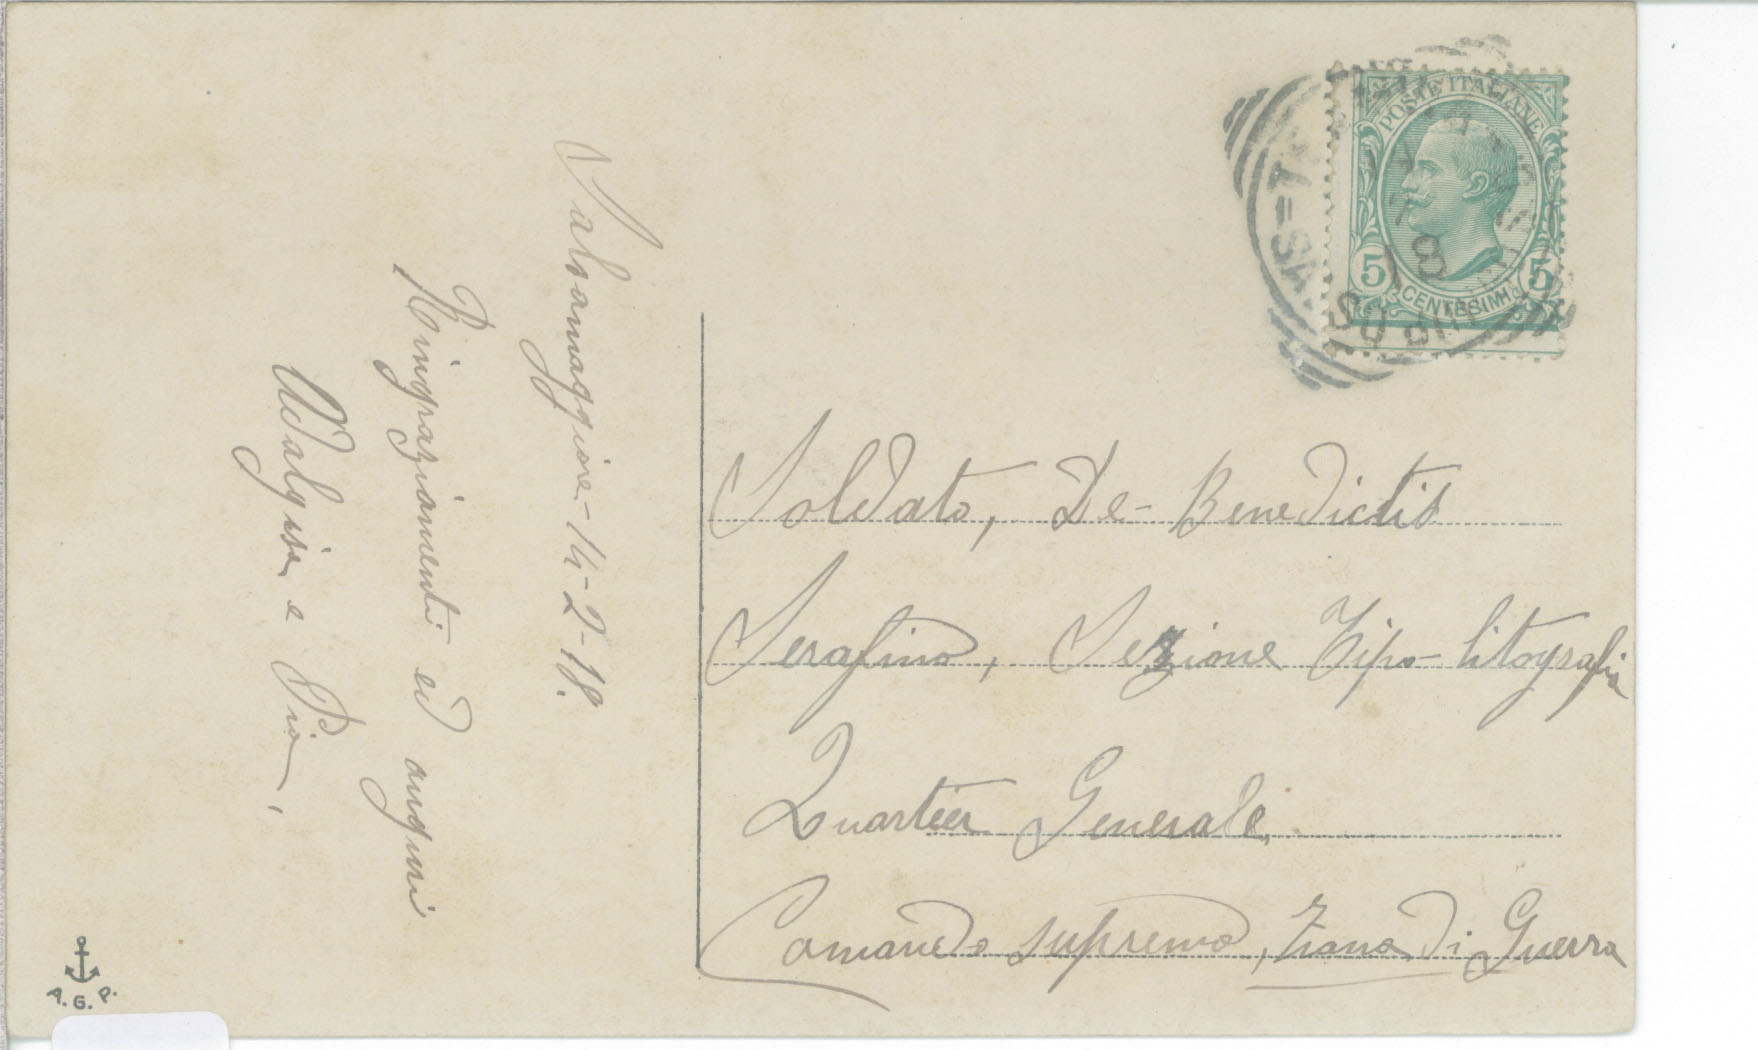 Salsomaggiore - 14-2-18.
Ringraziamenti ed auguri
Adalgisa e Pia,
POSTE ITALIANE
5 5
CENTESIMI
Soldato, De-Benedictis
Serafino, Sezione Tipo-litografia
Quartier Generale
Comando supremo, Zona di Guerra
A. G. P.